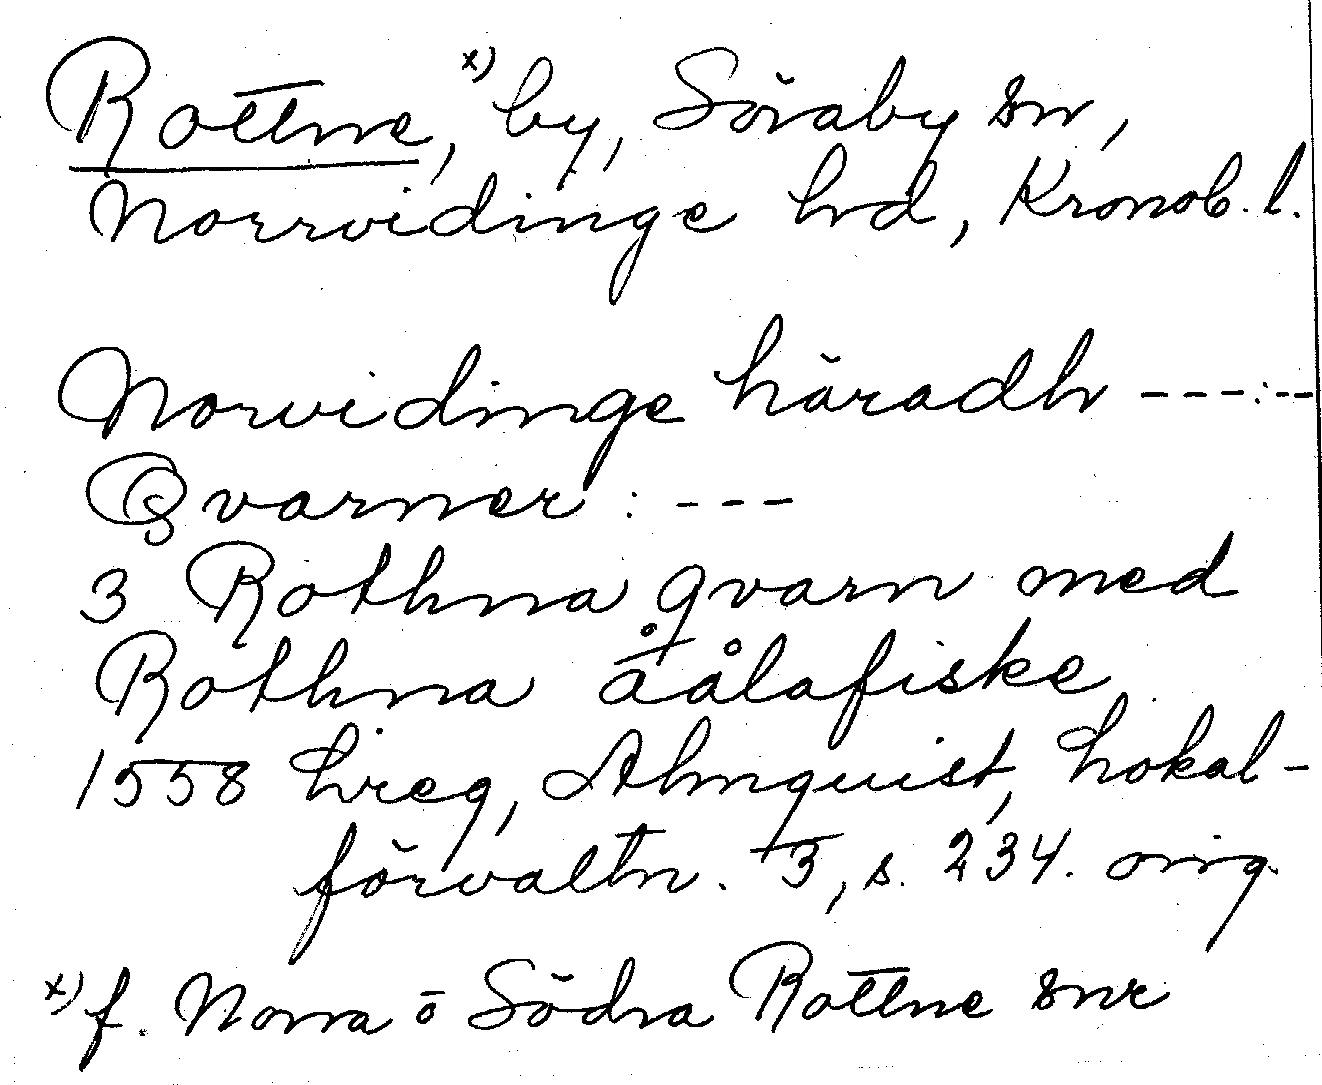 Rottne, x) by, Söraby sn,
Norrvidinge hd, Kronob. l.
Norvidinge häradh - - - : - -
Qvarner : - - -
3 Rothna qvarn med
Rothna å ålafiske
1558 hreg, Almquist, Lokal-
förvaltn. 3, s. 234. orig.
x) f. Norra o Södra Rottne snr